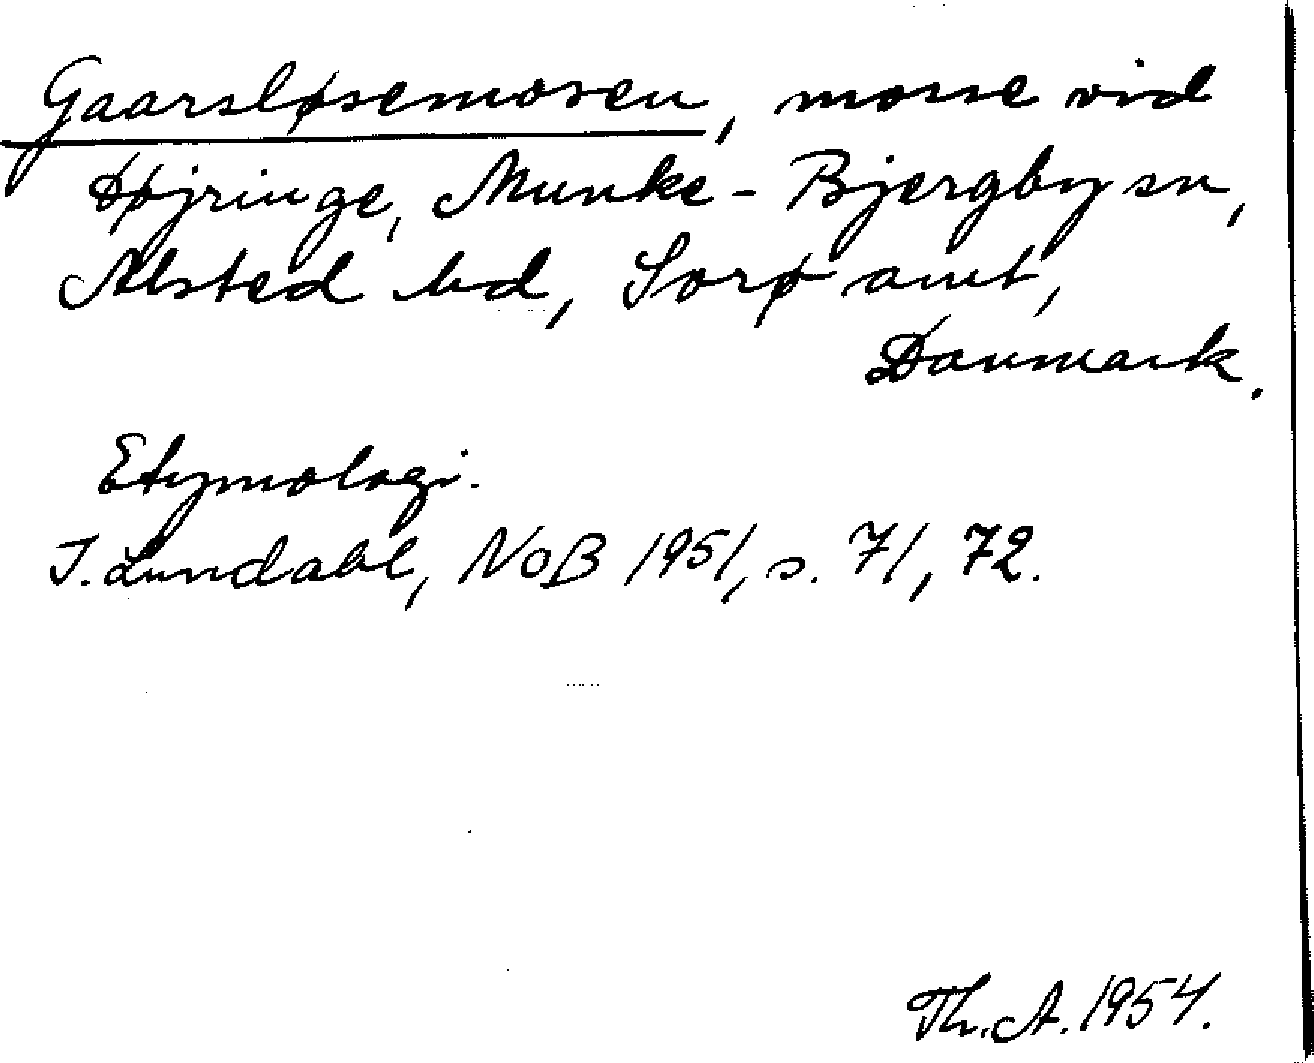 Gaarsløsemosen, mosse vid
Døjringe, Munke-Bjergby sn,
Alsted hd, Sorø amt,
Danmark.
Etymologi.
I. Lundahl, NoB 1951, s. 71, 72.
Th. A. 1954.